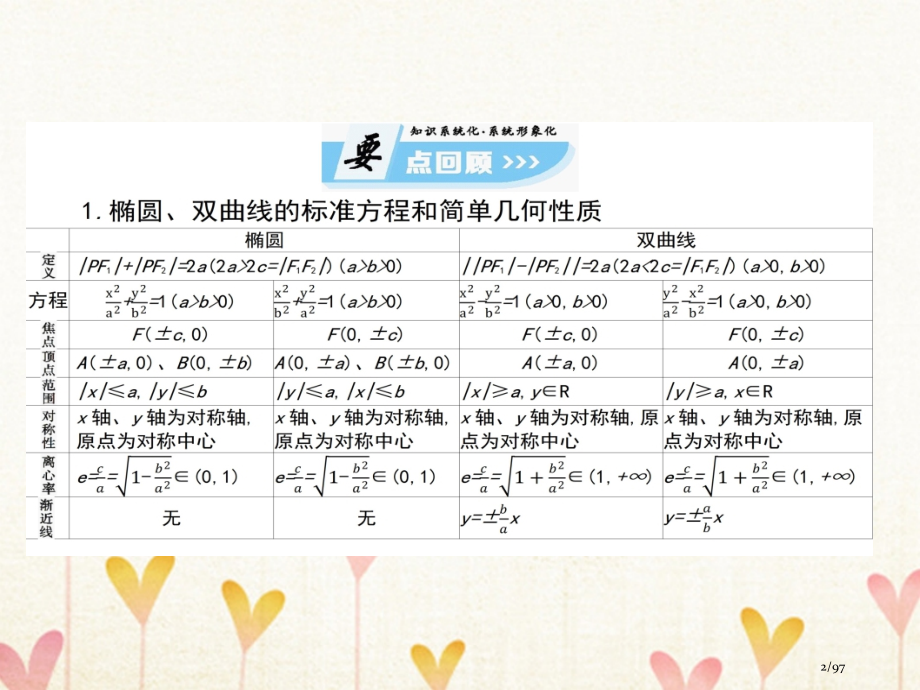 知识系统化·系统形象化
要点回顾>>>
1.椭圆、双曲线的标准方程和简单几何性质
椭圆 双曲线
定义 |PF₁|+|PF₂|=2a(2a>2c=|F₁F₂|)(a>b>0) ||PF₁|-|PF₂||=2a(2a<2c=|F₁F₂|)(a>0,b>0)
方程 x²/a²+y²/b²=1(a>b>0) x²/b²+y²/a²=1(a>b>0) x²/a²-y²/b²=1(a>0,b>0) y²/a²-x²/b²=1(a>0,b>0)
焦点 F(±c,0) F(0,±c) F(±c,0) F(0,±c)
顶点 A(±a,0)、B(0,±b) A(0,±a)、B(±b,0) A(±a,0) A(0,±a)
范围 |x|≤a,|y|≤b |y|≤a,|x|≤b |x|≥a,y∈R |y|≥a,x∈R
对称性 x轴、y轴为对称轴,原点为对称中心 x轴、y轴为对称轴,原点为对称中心 x轴、y轴为对称轴,原点为对称中心 x轴、y轴为对称轴,原点为对称中心
离心率 e=c/a=√(1-b²/a²)∈(0,1) e=c/a=√(1-b²/a²)∈(0,1) e=c/a=√(1+b²/a²)∈(1,+∞) e=c/a=√(1+b²/a²)∈(1,+∞)
渐近线 无 无 y=±b/a x y=±a/b x
2/97